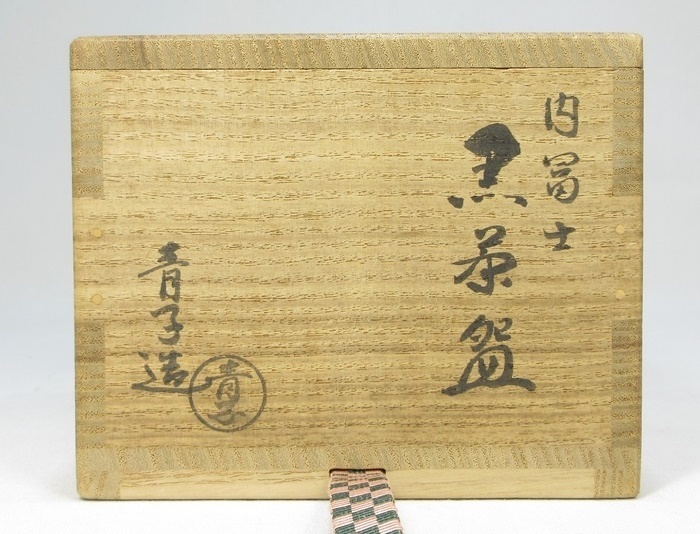 内冨士
黒茶盌
青子造
青子